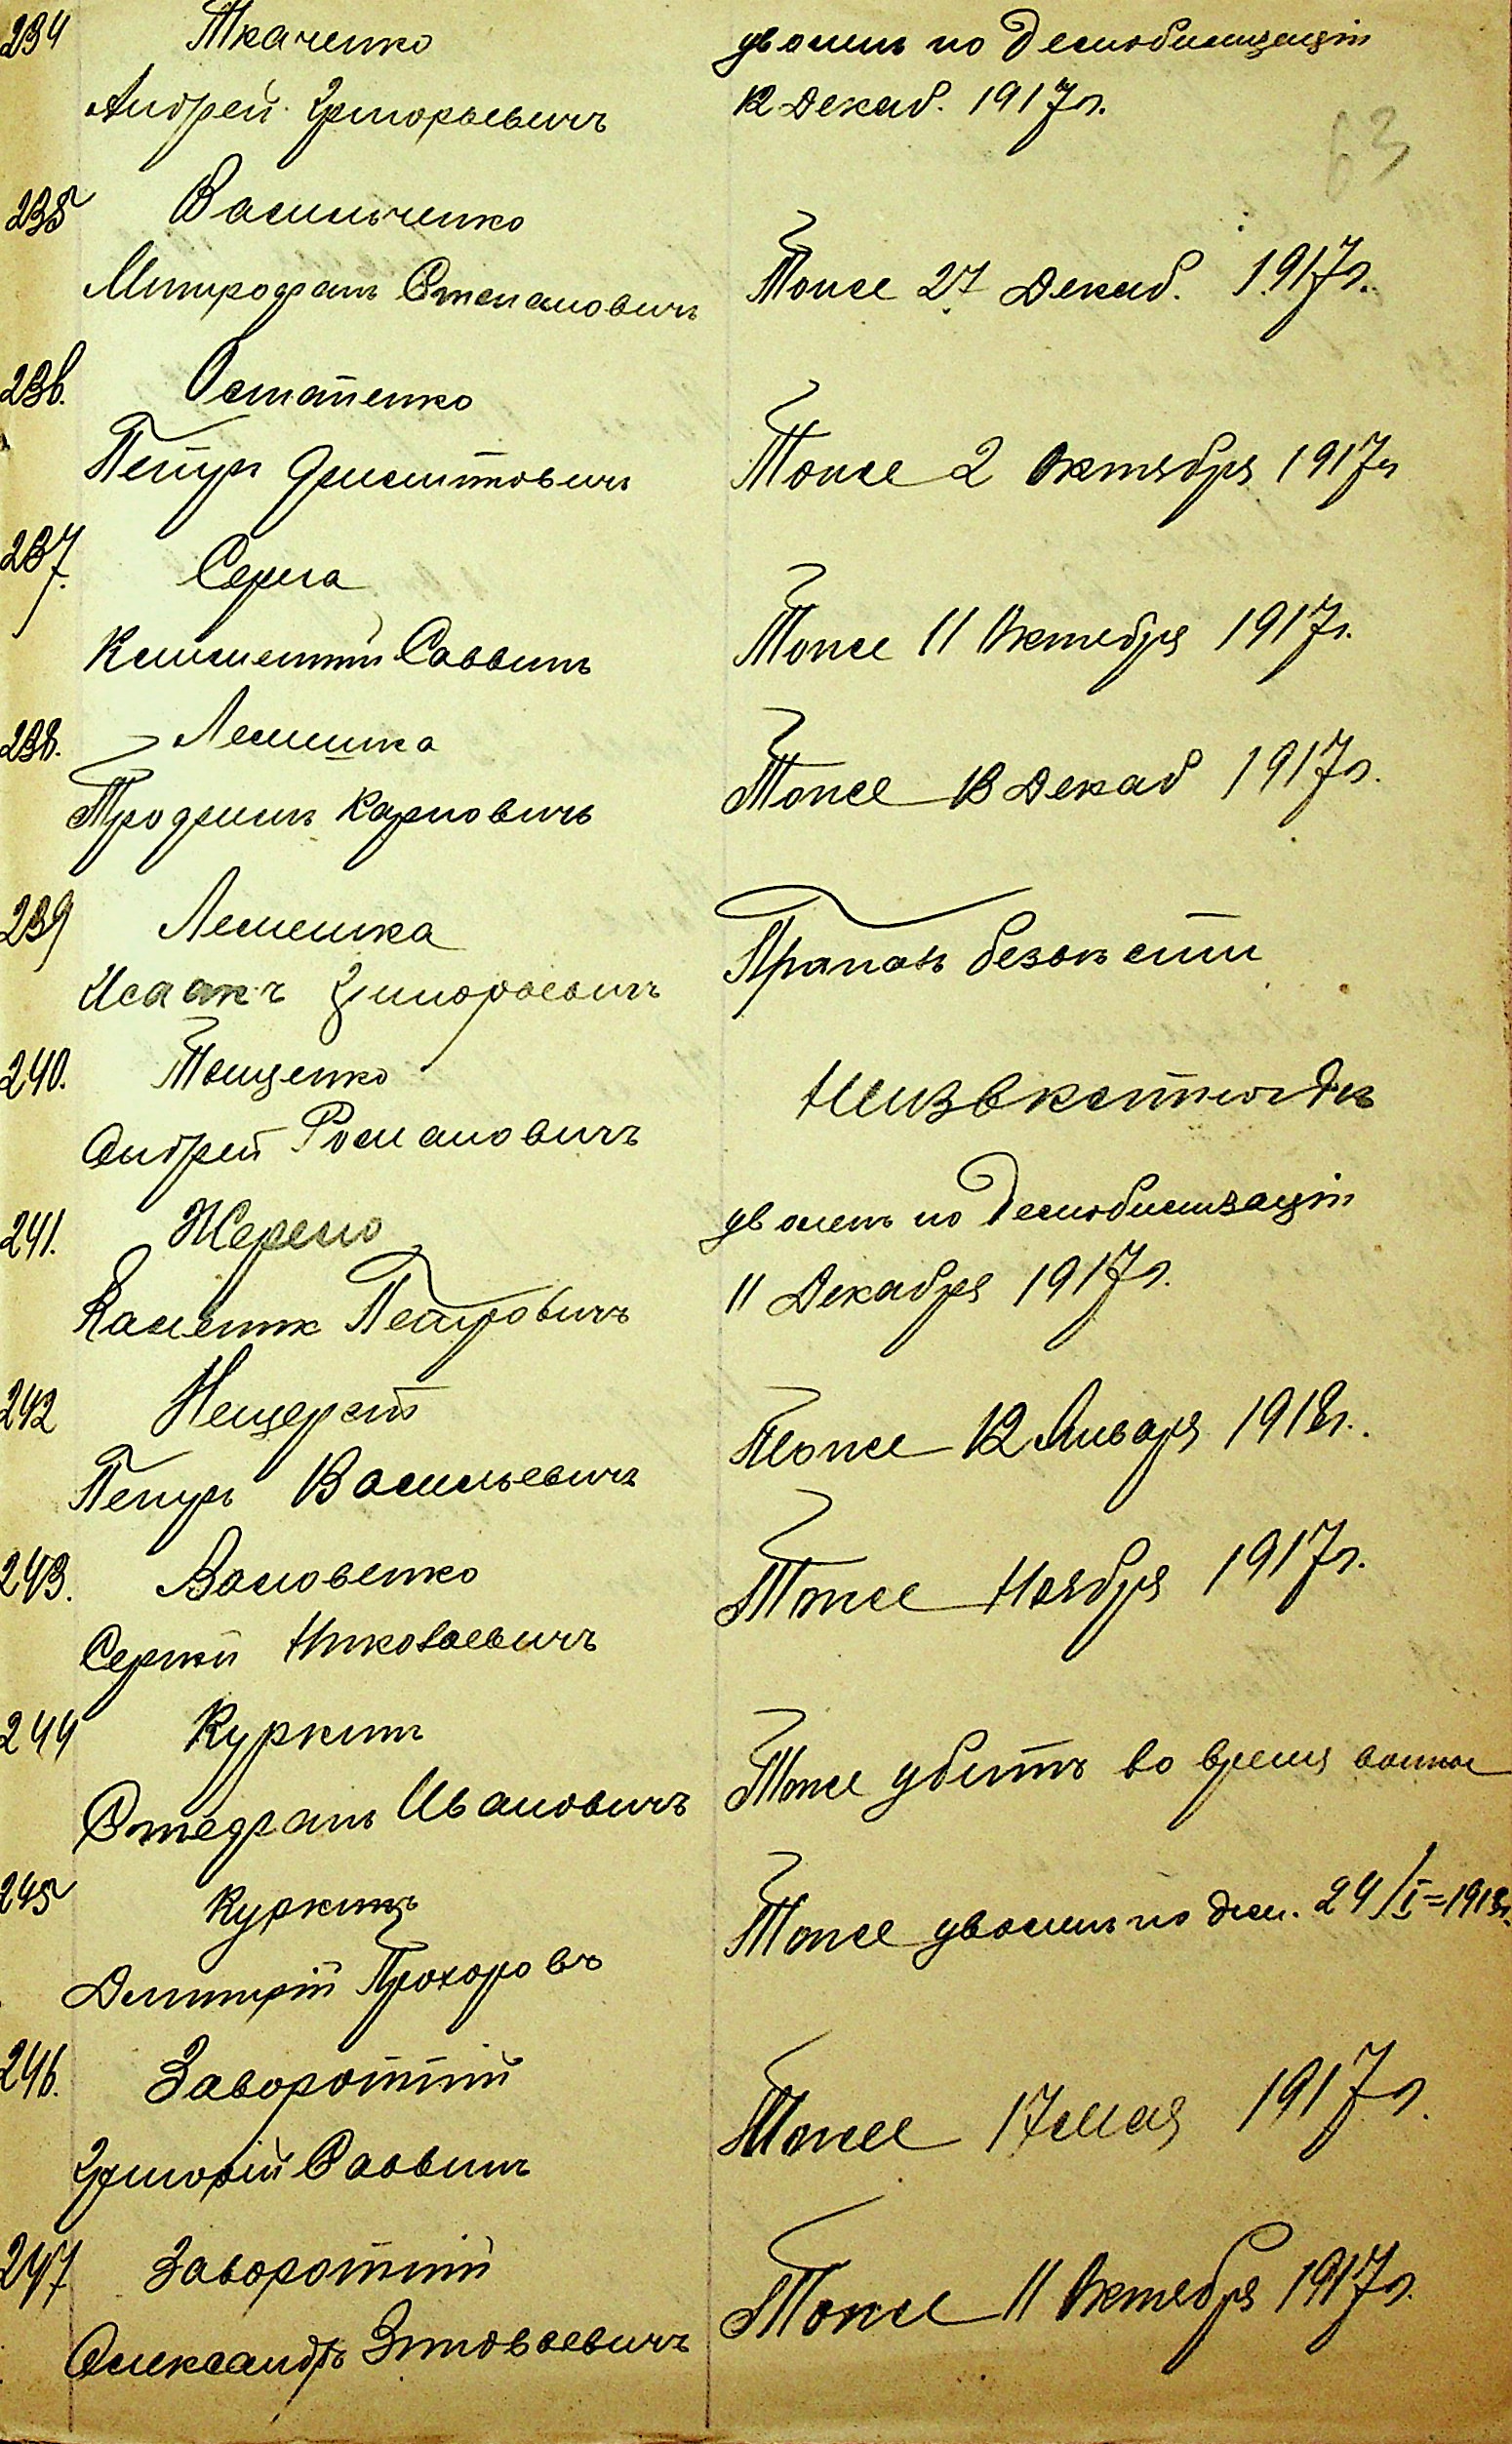 234 Ткаченко уволен по Демобилизаціи
Андрей Григорьевичъ 12 Декаб. 1917 г.
63
235 Васильченко
Митрофанъ Степановичъ Тоже 27 Декаб. 1917 г.
236. Остапенко
Петръ Тоже 2 Октября 1917 г
237. Серга
Климентій Саввичъ Тоже 11 Октября 1917 г.
238. Лемешка
Трофимъ Карповичъ Тоже 13 Декаб 1917 г.
239 Лемешка
Исаакъ Григорьевичъ Пропалъ безъ
240. Тощенко
Андрей Романовичъ
241. Жерело уволенъ по Демобилизаціи
Петровичъ 11 Декабря 1917 г.
242 Нещерет
Петръ Васильевичъ Тоже 12 Января 1918 г.
243. Воловенко Тоже Ноября 1917 г.
Сергей Николаевичъ
244 Куркинъ
Ивановичъ Тоже убитъ во время войны
245 Куркинъ Тоже уволенъ по дем. 24/I=1918 г.
Дмитрій Прохоровъ
246. Заворотній Тоже 17 мая 1917 г.
Григорій Саввичъ
247 Заворотній
Александръ Зиновьевичъ Тоже 11 Октября 1917 г.